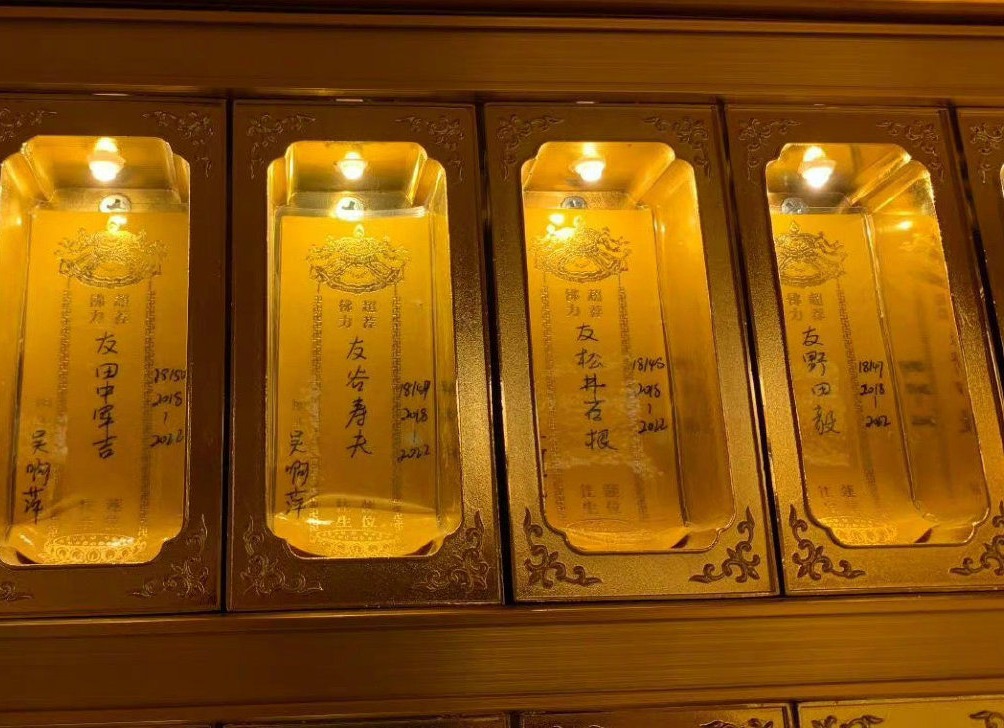 超荐
佛力
友田中军吉
18150
2018
-
2022
吴啊萍
超荐
佛力
友谷寿夫
18149
2018
-
2022
吴啊萍
生
位
超荐
佛力
友松井石根
18148
2018
-
2022
往生
莲位
超荐
佛力
友野田毅
18147
2018
-
2022